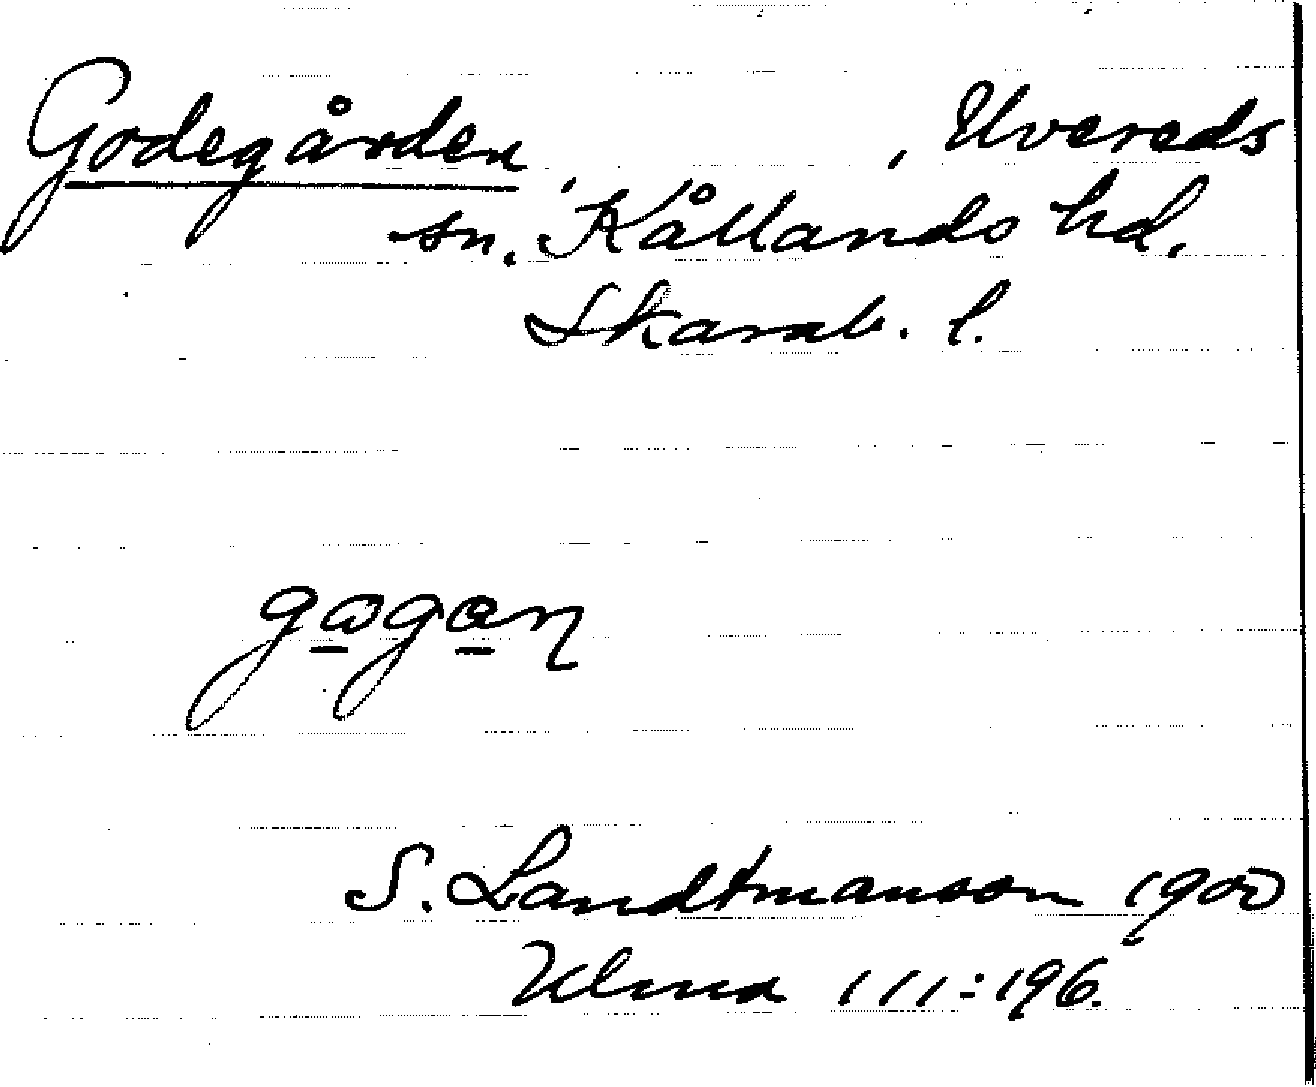 Godegården, Uvereds
sn. Kållands hd.
Skarab. l.
gagan
S. Landtmanson 1900
Ulma 111:196.